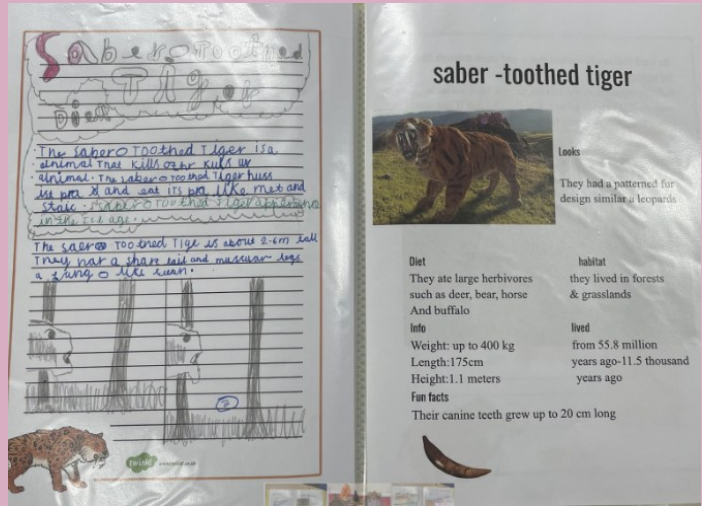 Saber-Toothed
Tiger
Diet
The Saber Toothed Tiger is a
animal that kills
animal. The saber Toothed Tiger
and eat its pra like met and
Saber Toothed Tiger
in the Ice age.
The Toothed Tige is about 2-6m tall
They a tail and muscular legs
a like
2
twinkl
saber -toothed tiger
Looks
They had a patterned fur
design similar a leopards
Diet
They ate large herbivores
such as deer, bear, horse
And buffalo
habitat
they lived in forests
& grasslands
Info
Weight: up to 400 kg
Length:175cm
Height:1.1 meters
lived
from 55.8 million
years ago-11.5 thousand
years ago
Fun facts
Their canine teeth grew up to 20 cm long